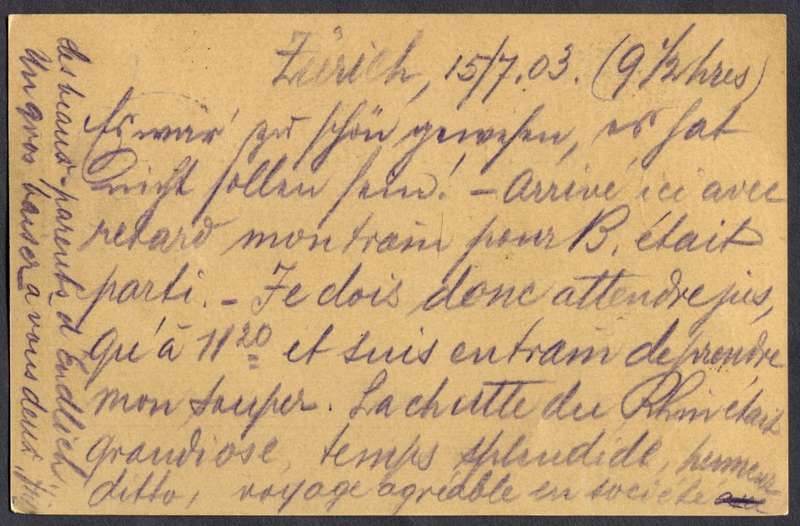 Zürich, 15/7.03. (9 1/2 hres)
Es wär' zu schön gewesen, es hat
nicht sollen sein! - Arrivé ici avec
retard mon train pour B. était
parti. - Je dois donc attendre jus,
qu'à 11 20 et suis en train de prendre
mon souper. La chutte du Rhin était
grandiose, temps splendide,
ditto, voyage agréable en société
des beaux-parents d'Endlich.
Un gros baiser à vous deux